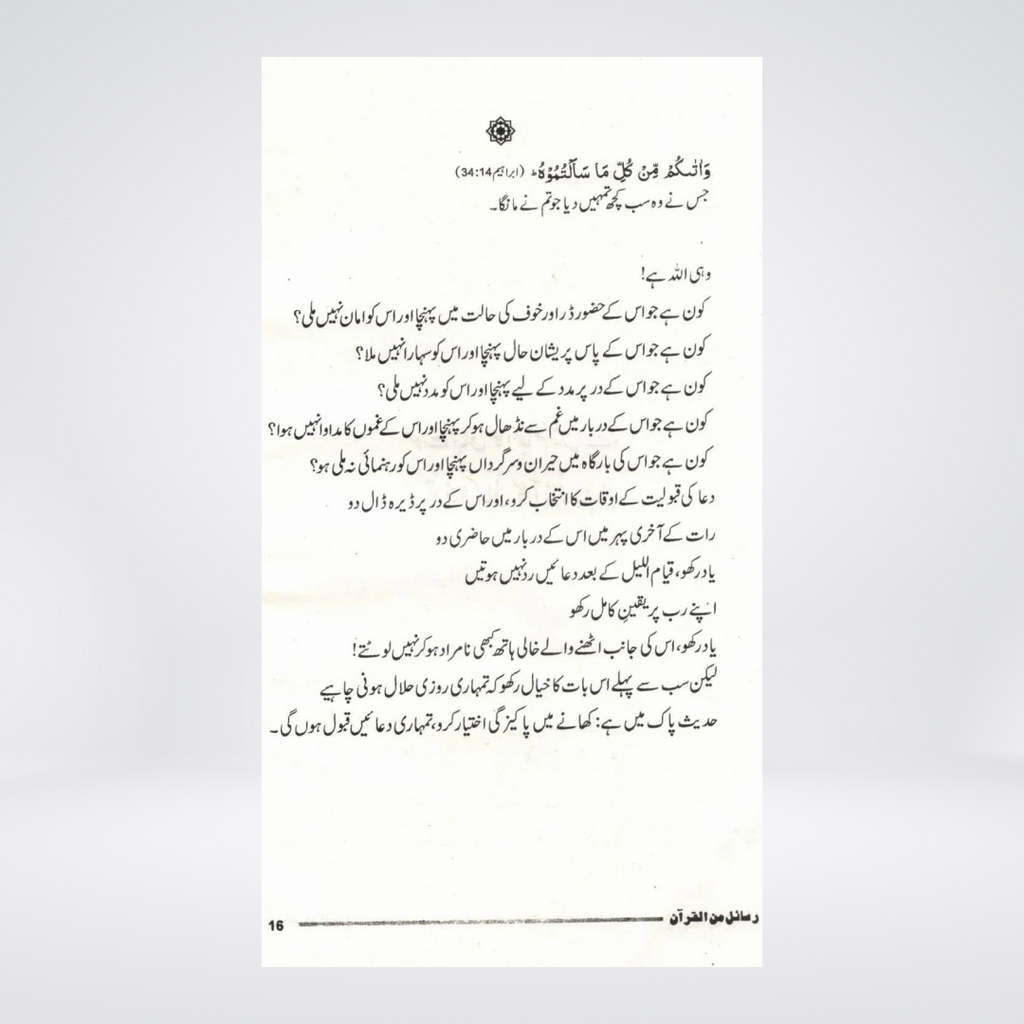 وَاٰتٰىكُمْ مِّنْ كُلِّ مَا سَاَلْتُمُوْهُ ؕ (ابراہیم 34:14)
جس نے وہ سب کچھ تمہیں دیا جو تم نے مانگا۔
وہی اللہ ہے!
کون ہے جو اس کے حضور ڈر اور خوف کی حالت میں پہنچا اور اس کو امان نہیں ملی؟
کون ہے جو اس کے پاس پریشان حال پہنچا اور اس کو سہارا نہیں ملا؟
کون ہے جو اس کے در پر مدد کے لیے پہنچا اور اس کو مدد نہیں ملی؟
کون ہے جو اس کے دربار میں غم سے نڈھال ہو کر پہنچا اور اس کے غموں کا مداوا نہیں ہوا؟
کون ہے جو اس کی بارگاہ میں حیران و سرگرداں پہنچا اور اس کو رہنمائی نہ ملی ہو؟
دعا کی قبولیت کے اوقات کا انتخاب کرو، اور اس کے در پر ڈیرہ ڈال دو
رات کے آخری پہر میں اس کے دربار میں حاضری دو
یاد رکھو، قیام اللیل کے بعد دعائیں رد نہیں ہوتیں
اپنے رب پر یقینِ کامل رکھو
یاد رکھو، اس کی جانب اٹھنے والے خالی ہاتھ کبھی نامراد ہو کر نہیں لوٹتے!
لیکن سب سے پہلے اس بات کا خیال رکھو کہ تمہاری روزی حلال ہونی چاہیے
حدیث پاک میں ہے: کھانے میں پاکیزگی اختیار کرو، تمہاری دعائیں قبول ہوں گی۔
رسائل من القرآن 16